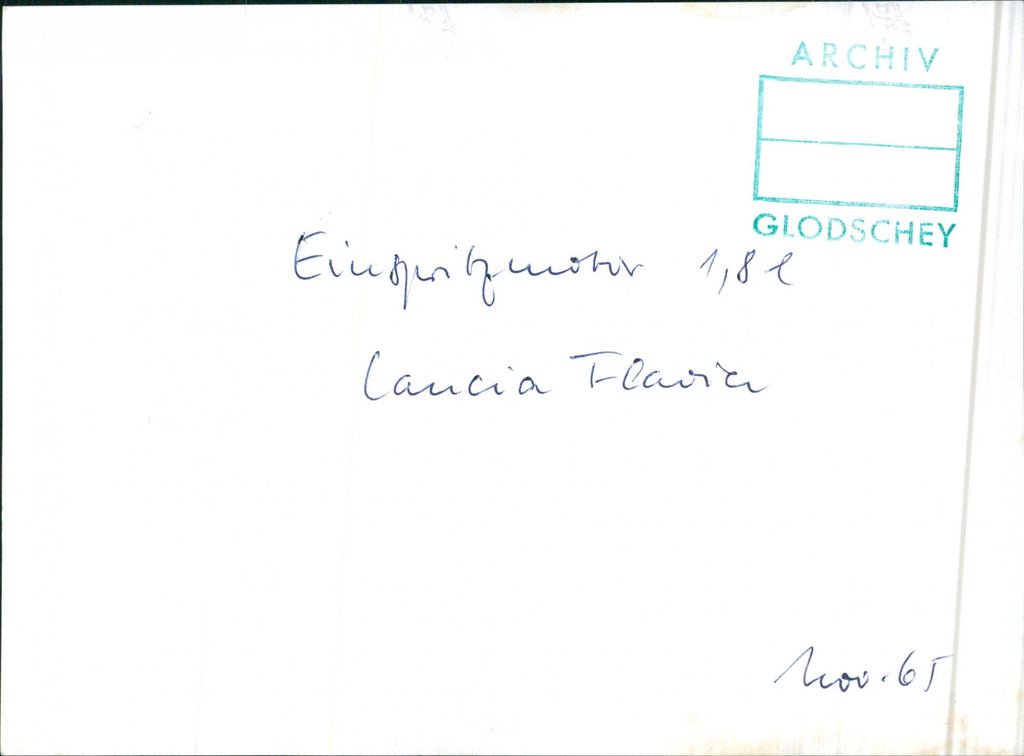 ARCHIV
GLODSCHEY
Einspritzmotor 1,8 l
Lancia Flavia
Nov. 65